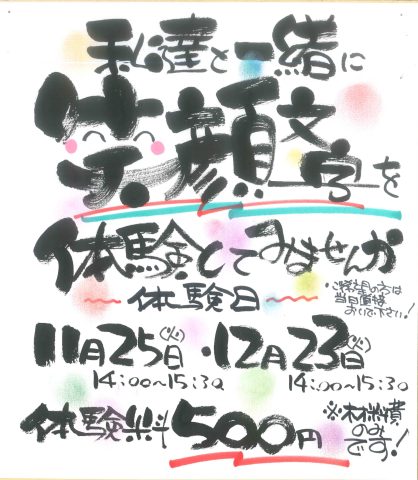 私達と一緒に
笑顔文字を
体験してみませんか
体験日
※ご希望の方は
当日直接
おいで下さい!
11月25日(火)・12月23日(火)
14:00〜15:30 14:00〜15:30
体験料500円
※材料費
のみ
です!